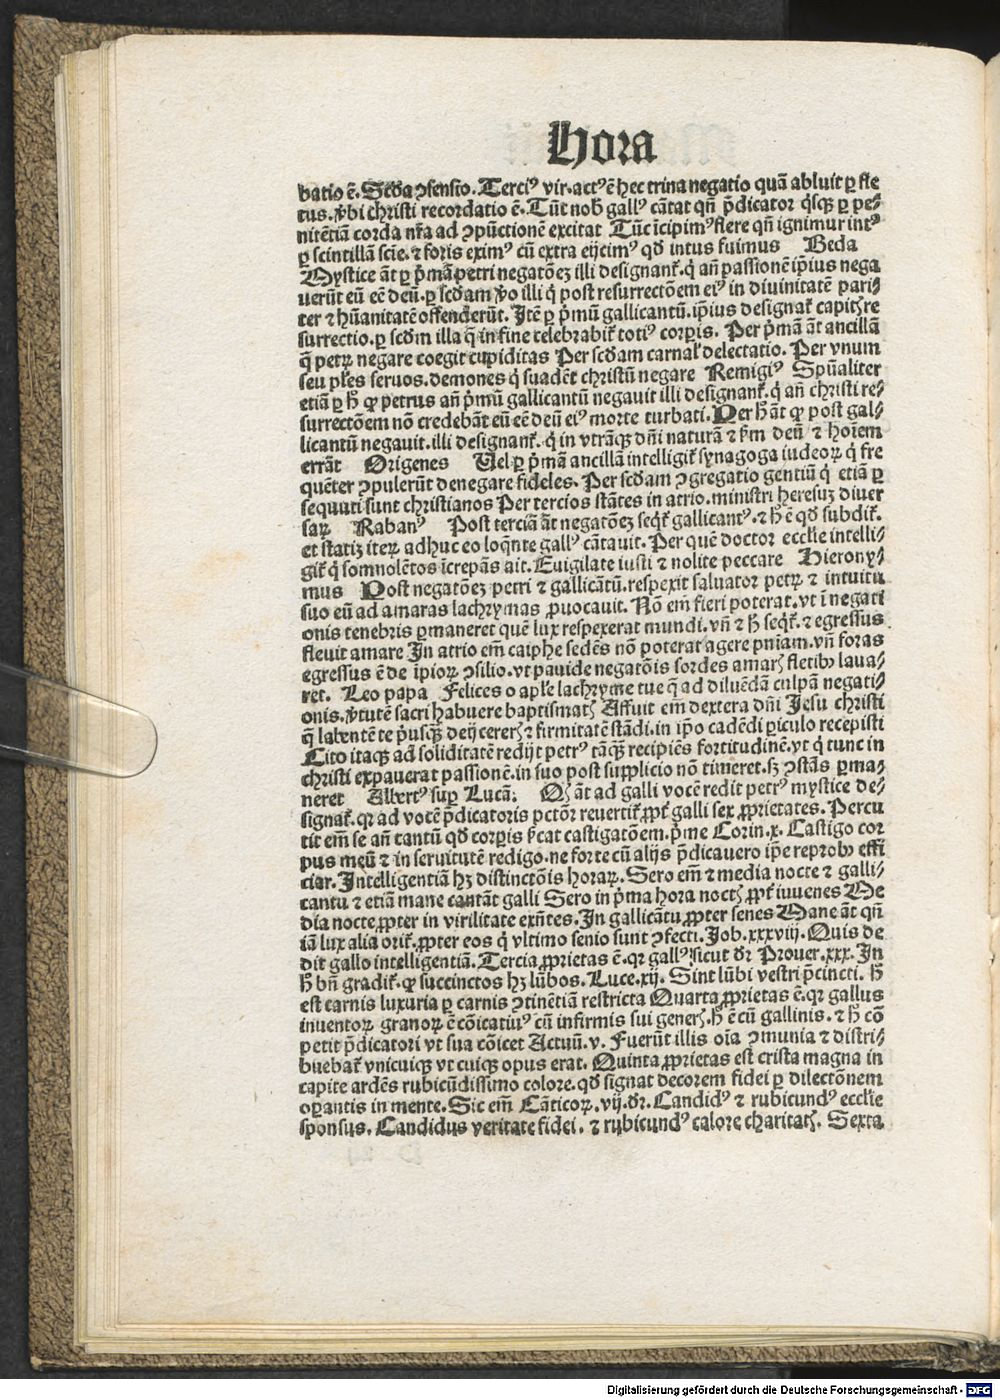 Hora
batio ē. Scḋa ꝯsensio. Terciꝰ vir. actꝰ ē hec trina negatio quā abluit ꝑ fle
tus. vbi christi recordatio ē. Tūc nob̄ gallꝰ cātat qn̄ p̄dicator qͥsqꝫ ꝑ pe⸗
nitētiā corda nr̄a ad ꝯpūctionē excitat Tūc īcipimꝰ flere qn̄ ignimur intꝰ
ꝑ scintillā scīe. ⁊ foris eximꝰ cū extra eijcimꝰ qḋ intus fuimus Beda
Mystice āt ꝑ p̄mā petri negatōeꝫ illi designant̄. qͥ an̄ passionē ip̄ius nega
uerūt eū eē deū. ꝑ scḋam v̄o illi qͥ post resurrectōem eiꝰ in diuinitatē pari⸗
ter ⁊ hūanitatē offenderūt. Itē ꝑ p̄mū gallicantū. ip̄ius designat̄ capitꝭ re
surrectio. ꝑ scḋm illa q̄ in fine celebrabit̄ totiꝰ corꝑis. Per p̄mā āt ancillā
q̄ petꝝ negare coegit cupiditas Per scḋam carnal̄ delectatio. Per vnum
seu pl̄es seruos. demones qͥ suadēt christū negare Remigiꝰ Spūaliter
etiā ꝑ h̄ ꝙ petrus an̄ p̄mū gallicantū negauit illi designant̄. qͥ an̄ christi re⸗
surrectōem nō credebāt eū eē deū eiꝰ morte turbati. Per h̄ āt ꝙ post gal⸗
licantū negauit. illi designant̄. qͥ in vtrāqꝫ dn̄i naturā ⁊ ẜm deū ⁊ hoīem
errāt Origenes Uel ꝑ p̄mā ancillā intelligit̄ synagoga iudeoꝝ qͥ fre
quēter ꝯpulerūt denegare fideles. Per scḋam ꝯgregatio gentiū qͥ etiā ꝑ
sequuti sunt christianos Per tercios stātes in atrio. ministri heresuꝫ diuer
saꝝ Rabanꝰ Post terciā āt negatōeꝫ seqͥt̄ gallicantꝰ. ⁊ h̄ ē qḋ subdit̄.
et statiꝫ iteꝝ adhuc eo loqn̄te gallꝰ cātauit. Per quē doctor eccl̄ie intelli⸗
git̄ qͥ somnolētos īcrepās ait. Euigilate iusti ⁊ nolite peccare Hierony⸗
mus Post negatōeꝫ petri ⁊ gallicātū. respexit saluator petꝝ ⁊ intuitu
suo eū ad amaras lachrymas ꝓuocauit. Nō em̄ fieri poterat. vt ī negati
onis tenebris ꝑmaneret quē lux respexerat mundi. vn̄ ⁊ h̄ seqͥt̄. ⁊ egressus
fleuit amare In atrio em̄ caiphe sedēs nō poterat agere pn̄iam. vn̄ foras
egressus ē de īpioꝝ ꝯsilio. vt pauide negatōis sordes amarꝭ fletibꝰ laua⸗
ret. Leo papa Felices o apl̄e lachryme tue q̄ ad diluēdā culpā negati⸗
onis. v̄tutē sacri habuere baptismatꝭ Affuit em̄ dextera dn̄i Jesu christi
q̄ labentē te p̄usqꝫ̄ deijcererꝭ ⁊ firmitatē stādi. in ip̄o cadēdi ꝑiculo recepisti
Cito itaqꝫ ad soliditatē redijt petrꝰ tāqꝫ̄ recipiēs fortitudinē. vt qͥ tunc in
christi expauerat passionē. in suo post supplicio nō timeret. sꝫ ꝯstās ꝑma⸗
neret Albertꝰ suꝑ Lucā. Qꝫ āt ad galli vocē redit petrꝰ mystice de⸗
signat̄. qꝛ ad vocē p̄dicatoris pctōꝛ reuertit̄ ꝓpt̄ galli sex ꝓprietates. Percu
tit em̄ se an̄ cantū qḋ corꝑis ẜcat castigatōem. p̄me Corin. x. Castigo cor
pus meū ⁊ in seruitutē redigo. ne forte cū alijs p̄dicauero ip̄e reprobꝰ effi
ciar. Intelligentiā hꝫ distinctōis horaꝝ. Sero em̄ ⁊ media nocte ⁊ galli⸗
cantu ⁊ etiā mane cantāt galli Sero in p̄ma hora noctꝭ ꝓpt̄ iuuenes Me
dia nocte ꝓpter in virilitate exn̄tes. In gallicātu ꝓpter senes Mane āt qn̄
iā lux alia orit̄. ꝓpter eos qͥ vltimo senio sunt ꝯfecti. Job. xxxviij. Quis de
dit gallo intelligentiā. Tercia ꝓprietas ē. qꝛ gallꝰ sicut dr̄ Prouer. xxx. In
h̄ bn̄ gradit̄. ꝙ succinctos hꝫ lūbos. Luce. xij. Sint lūbi vestri p̄cincti. h̄
est carnis luxuria ꝑ carnis ꝯtinētiā restricta Quarta ꝓprietas ē. qꝛ gallus
inuentoꝝ granoꝝ ē cōicatiuꝰ cū infirmis sui generꝭ. h̄ ē cū gallinis. ⁊ h̄ cō
petit p̄dicatori vt sua cōicet Actuū. v. Fuerūt illis oīa ꝯmunia ⁊ distri⸗
buebat̄ vnicuiqꝫ vt cuiqꝫ opus erat. Quinta ꝓprietas est crista magna in
capite ardēs rubicūdissimo colore. qḋ signat decorem fidei ꝑ dilectōnem
oꝑantis in mente. Sic em̄ Cāticoꝝ. vij. dr̄. Candidꝰ ⁊ rubicundꝰ eccl̄ie
sponsus. Candidus veritate fidei. ⁊ rubicundꝰ calore charitatꝭ. Sexta
Digitalisierung gefördert durch die Deutsche Forschungsgemeinschaft - DFG